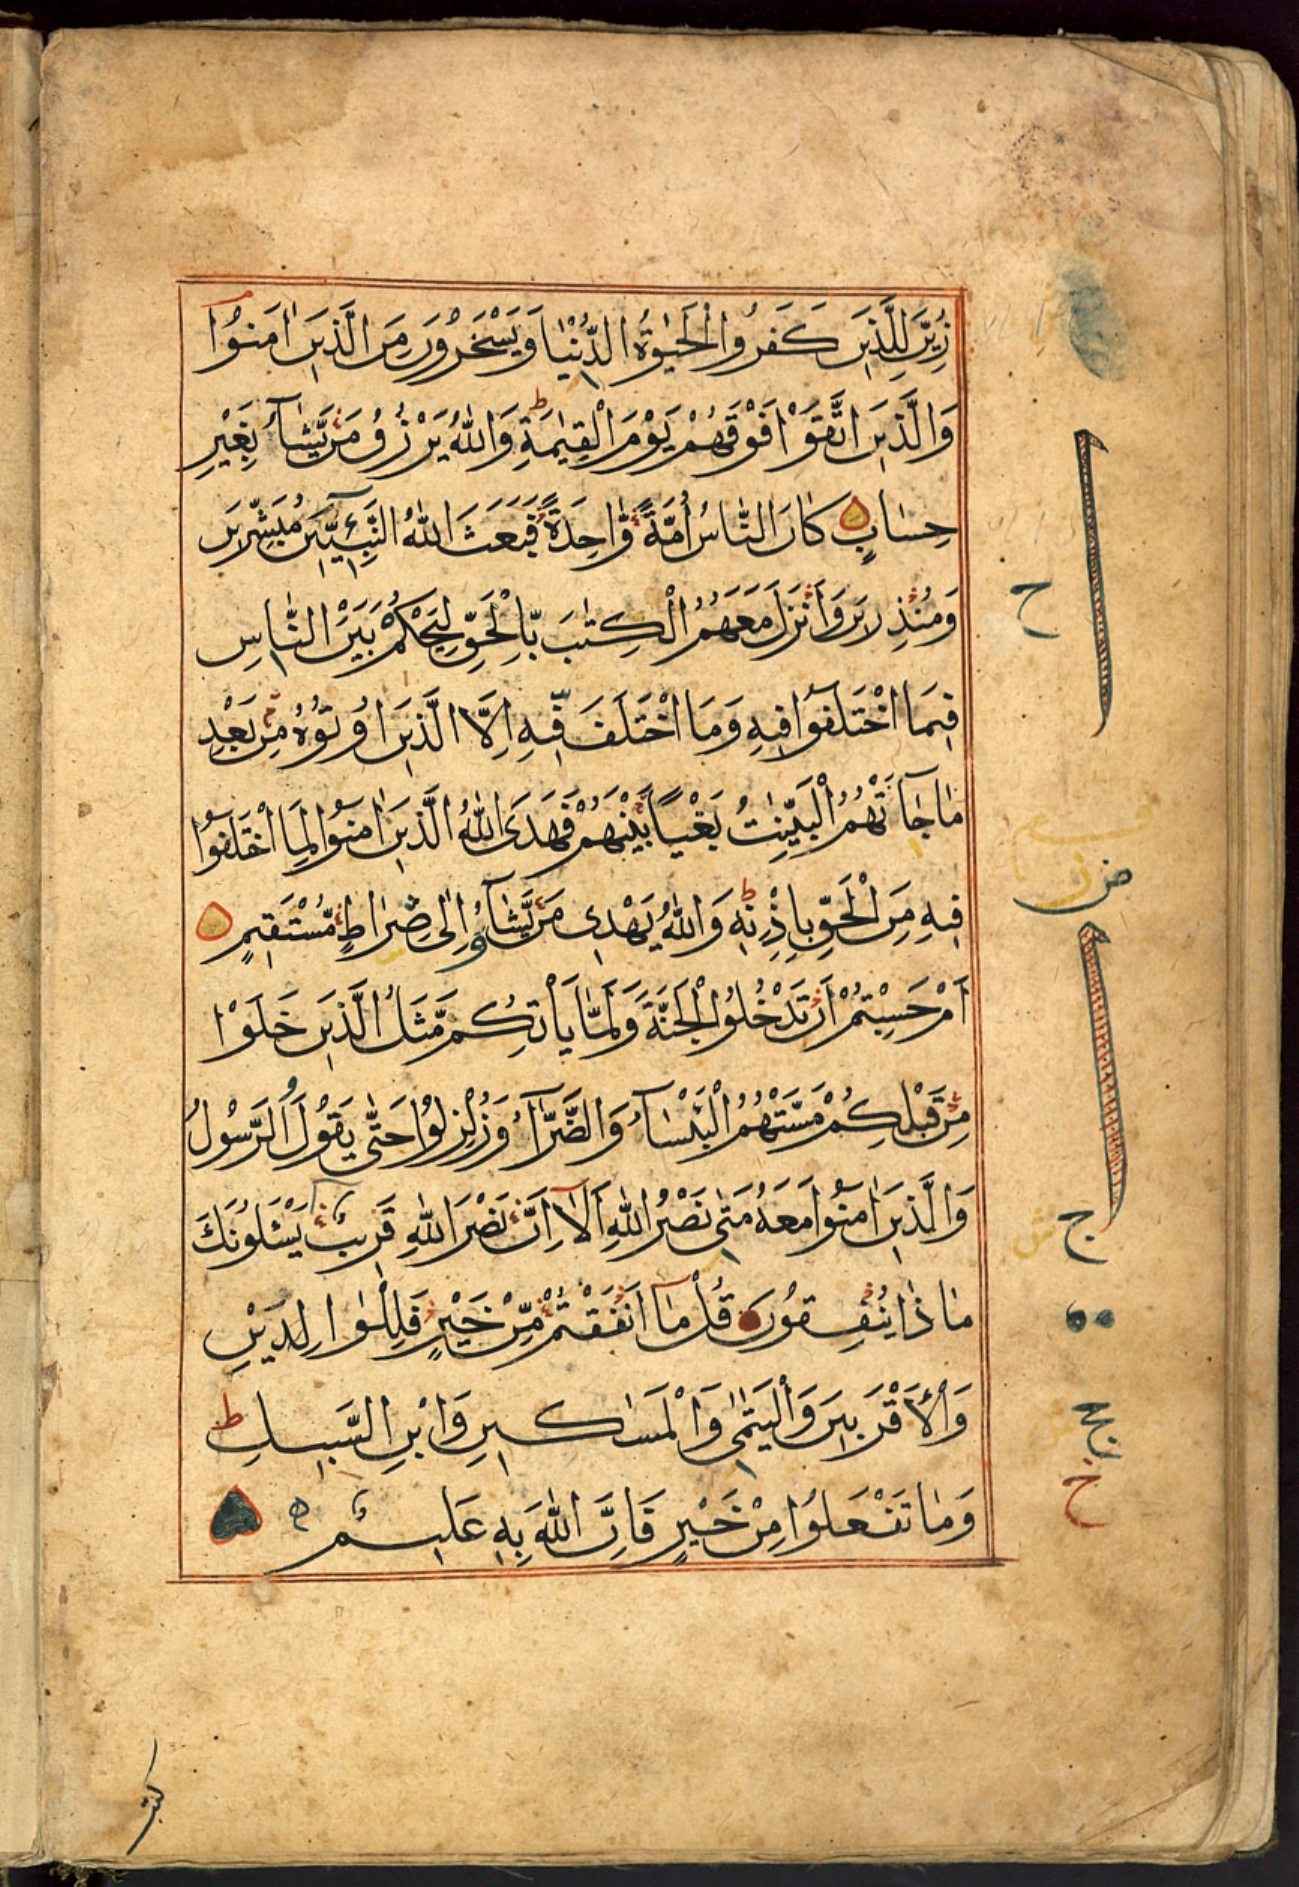 زُيِّنَ لِلَّذِينَ كَفَرُوا الْحَيٰوةُ الدُّنْيَا وَيَسْخَرُونَ مِنَ الَّذِينَ اٰمَنُوْا
وَالَّذِينَ اتَّقَوْا فَوْقَهُمْ يَوْمَ الْقِيٰمَةِ ط وَاللّٰهُ يَرْزُقُ مَنْ يَّشَآءُ بِغَيْرِ
حِسَابٍ كَانَ النَّاسُ أُمَّةً وَّاحِدَةً فَبَعَثَ اللّٰهُ النَّبِيّٖنَ مُبَشِّرِينَ
وَمُنْذِرِينَ وَأَنْزَلَ مَعَهُمُ الْكِتٰبَ بِالْحَقِّ لِيَحْكُمَ بَيْنَ النَّاسِ
فِيمَا اخْتَلَفُوا فِيهِ وَمَا اخْتَلَفَ فِيهِ اِلَّا الَّذِينَ اُوتُوْهُ مِنْ بَعْدِ
مَا جَآءَتْهُمُ الْبَيِّنٰتُ بَغْيًا بَيْنَهُمْ فَهَدَى اللّٰهُ الَّذِينَ اٰمَنُوا لِمَا اخْتَلَفُوا
فِيهِ مِنَ الْحَقِّ بِاِذْنِهٖ ط وَاللّٰهُ يَهْدِى مَنْ يَّشَآءُ اِلٰى صِرَاطٍ مُّسْتَقِيمٍ
اَمْ حَسِبْتُمْ اَنْ تَدْخُلُوا الْجَنَّةَ وَلَمَّا يَأْتِكُمْ مَّثَلُ الَّذِينَ خَلَوْا
مِنْ قَبْلِكُمْ مَسَّتْهُمُ الْبَأْسَآءُ وَالضَّرَّآءُ وَزُلْزِلُوْا حَتّٰى يَقُولَ الرَّسُولُ
وَالَّذِينَ اٰمَنُوا مَعَهُ مَتٰى نَصْرُ اللّٰهِ اَلَآ اِنَّ نَصْرَ اللّٰهِ قَرِيبٌ يَسْـَٔلُونَكَ
مَاذَا يُنْفِقُونَ قُلْ مَآ اَنْفَقْتُمْ مِّنْ خَيْرٍ فَلِلْوَالِدَيْنِ
وَالْأَقْرَبِينَ وَالْيَتٰمٰى وَالْمَسَاكِينِ وَابْنِ السَّبِيلِ ط
وَمَا تَفْعَلُوا مِنْ خَيْرٍ فَاِنَّ اللّٰهَ بِهٖ عَلِيمٌ
ح
ض
ج
ج
خ
كتب